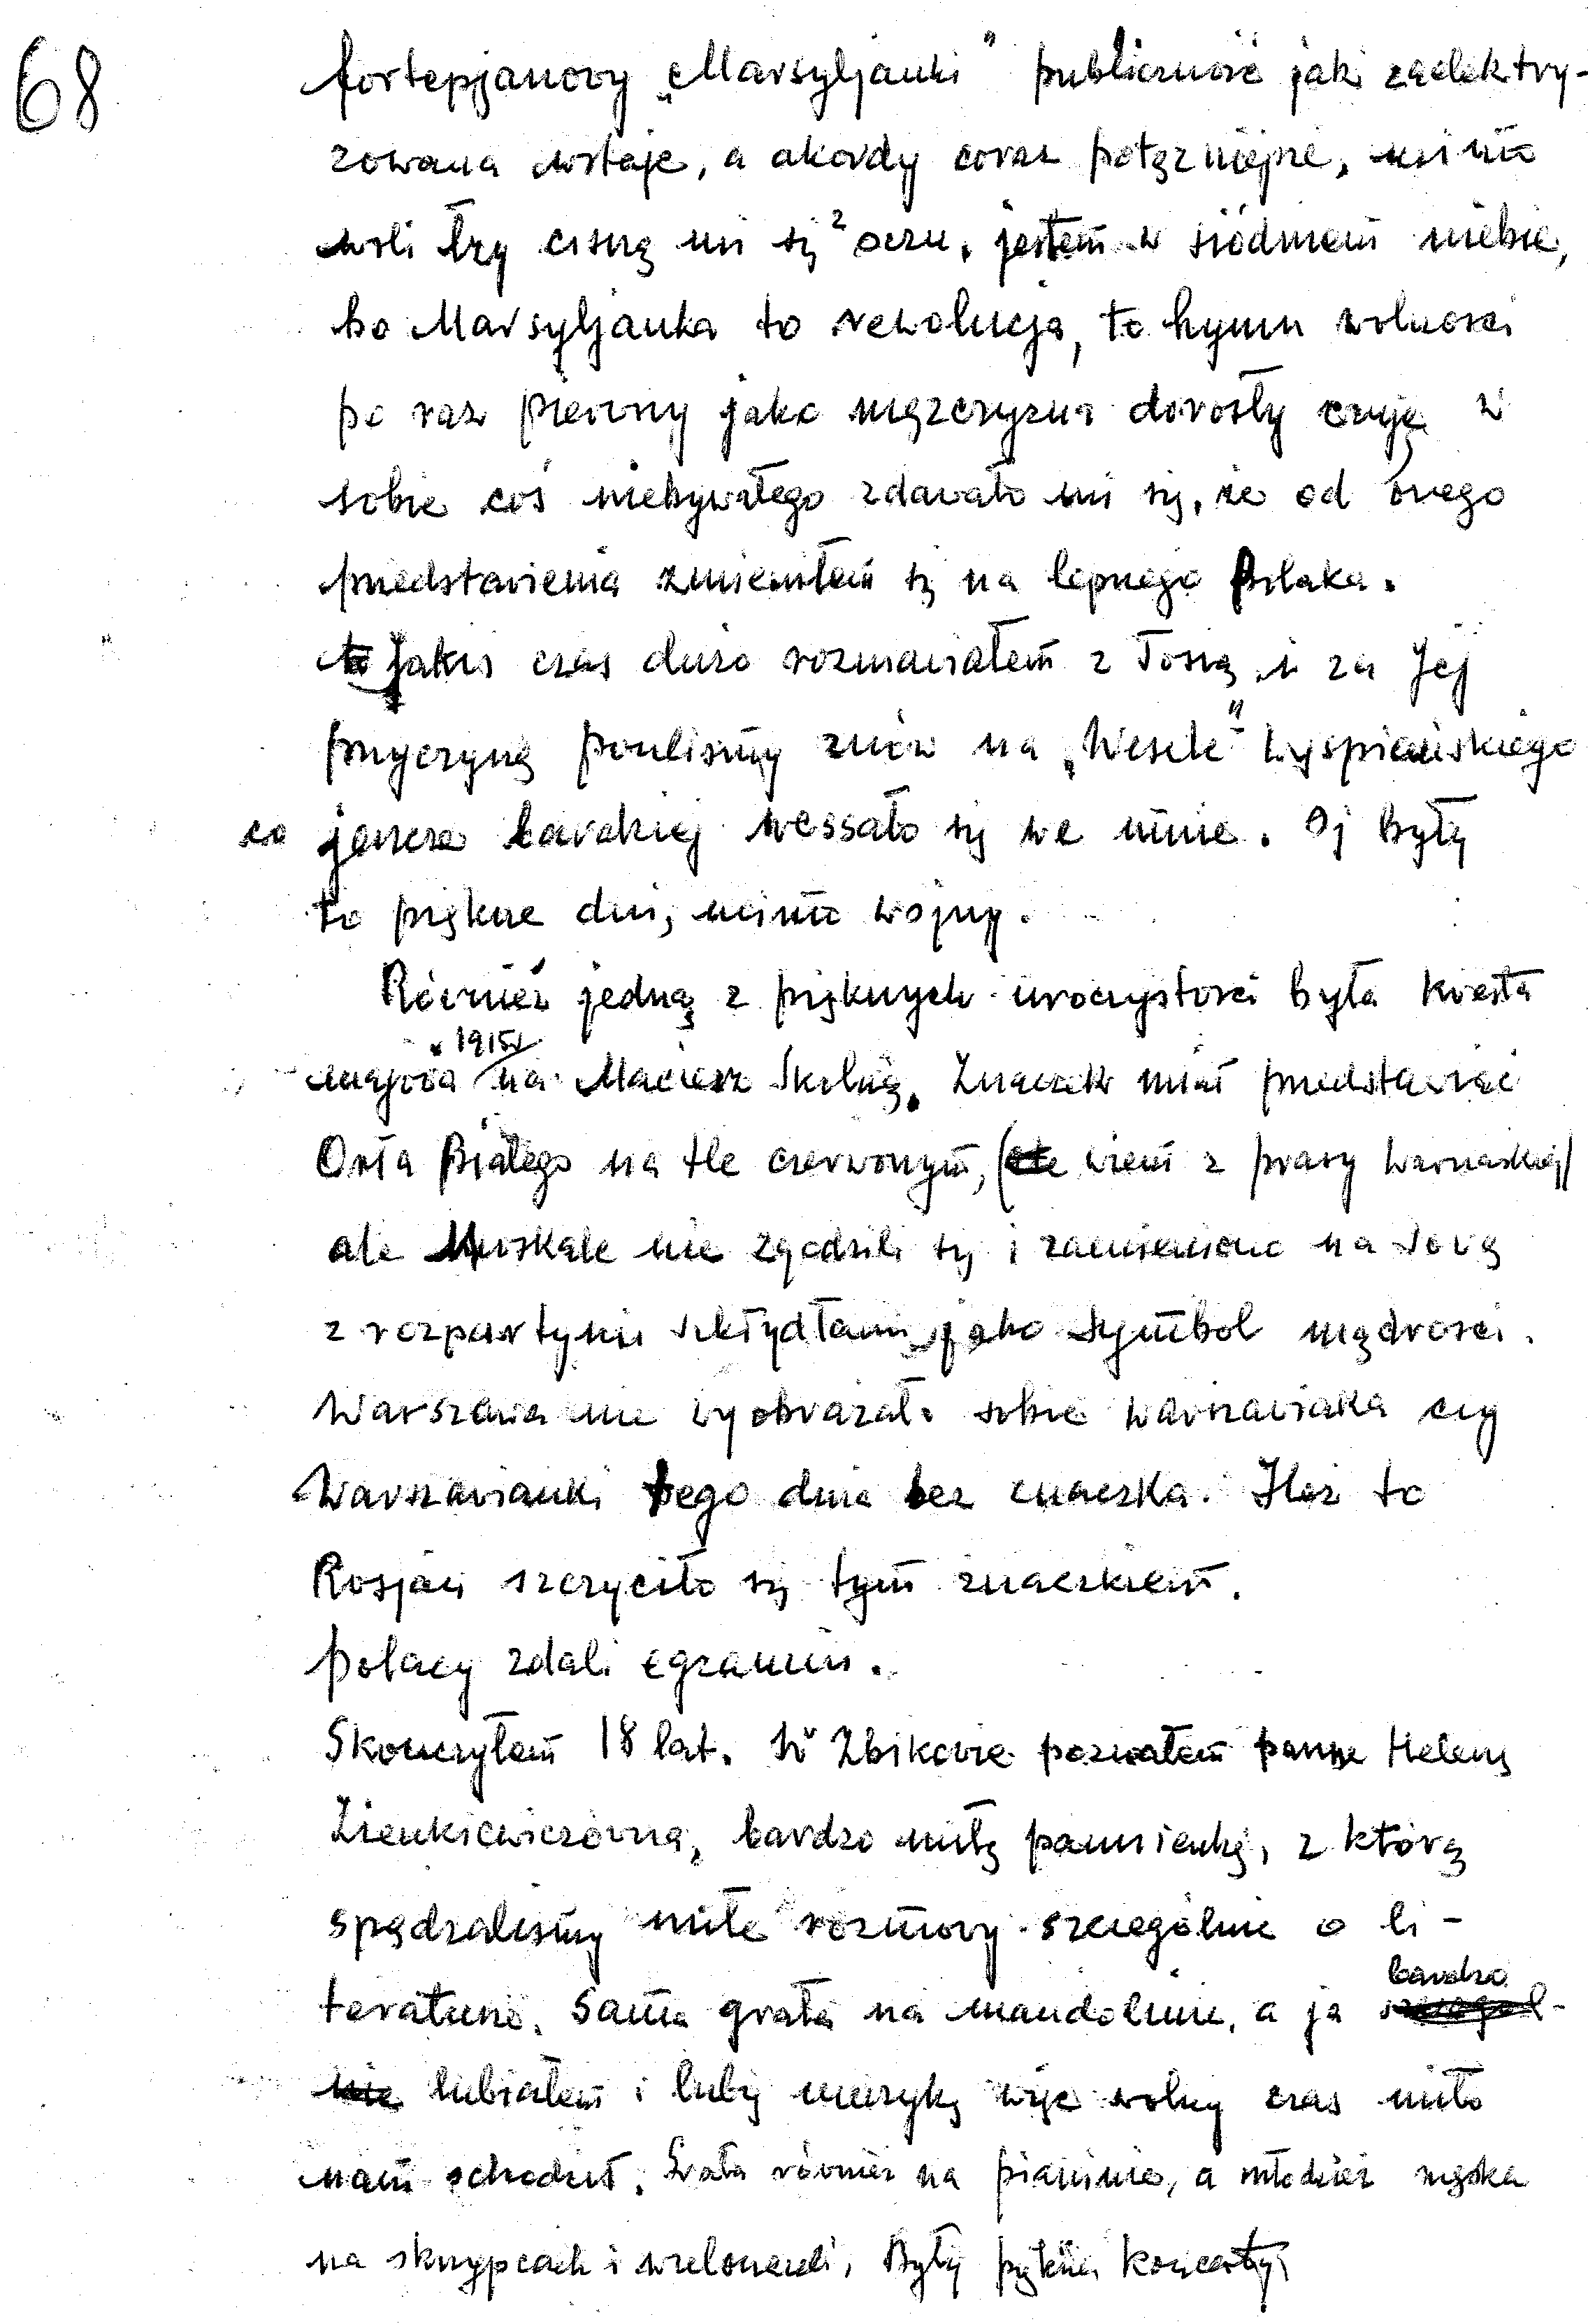 68
fortepjanowy „Marsyljanki" publiczność jak zaelektry-
zowana wstaje, a akordy coraz potężniejsze, mimo
woli łzy cisną mi się z oczu, jestem w siódmem niebie,
bo Marsyljanka to rewolucja, to hymn wolności
po raz pierwszy jako mężczyzna dorosły czuję w
sobie coś niebywałego zdawało mi się, że od owego
przedstawienia zmieniłem się na lepszego Polaka.
Jakiś czas dużo rozmawiałem z Tosią i za Jej
przyczyną poszliśmy znów na „Wesele" Wyspiańskiego
co jeszcze bardziej wessało się we mnie. Oj były
to piękne dni, mimo wojny.
Również jedną z pięknych uroczystości była kwesta
majowa w 1915r na Macierz Szkolną. Znaczek miał przedstawiać
Orła Białego na tle czerwonym, (wiem z prasy warszawskiej)
ale Moskale nie zgodzili się i zamieniono na sowę
z rozpartymi skrzydłami jako symbol mądrości.
Warszawa nie wyobrażała sobie warszawiaka czy
Warszawianki tego dnia bez znaczka. Ileż to
Rosjan szczyciło się tym znaczkiem.
Polacy zdali egzamin.
Skończyłem 18 lat. W Żbikowie poznałem pannę Helenę
Zienkiewiczówną, bardzo miłą panienkę, z którą
spędzaliśmy miłe rozmowy szczególnie o li-
teraturze. Sama grała na mandolinie, a ja bardzo
lubiałem i lubię muzykę więc wolny czas miło
nam schodził. Grała również na pianinie, a młodzież męska
na skrzypcach i wielonczeli, Były piękne koncerty,